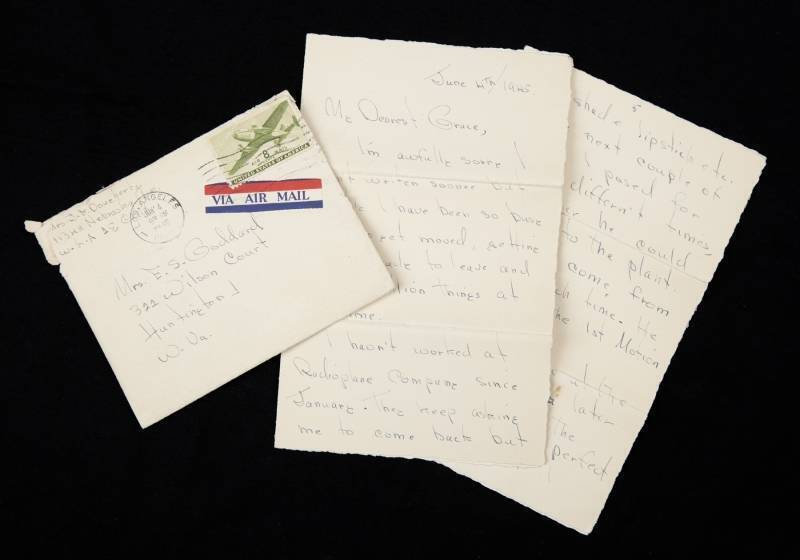 Mrs. J. E. Dougherty
11348 Nebraska
W.L.A.
LOS ANGELES
JUN 4
AIR 8¢ MAIL
UNITED STATES OF AMERICA
VIA AIR MAIL
Mrs. E. S. Goddard
322 Wilson Court
Huntington 1
W. Va.
June 4th, 1945
My Dearest Grace,
I'm awfully sorry I
writen sooner but
I have been so busy
moved, geting
to leave and
things at
I havn't worked at
Radioplane Company since
January. They keep asking
me to come back but
5
shade lipstick etc.
next couple of
I posed for
different times.
he could
to the plant
come from
time. He
the 1st Motion
the
later
the
perfect